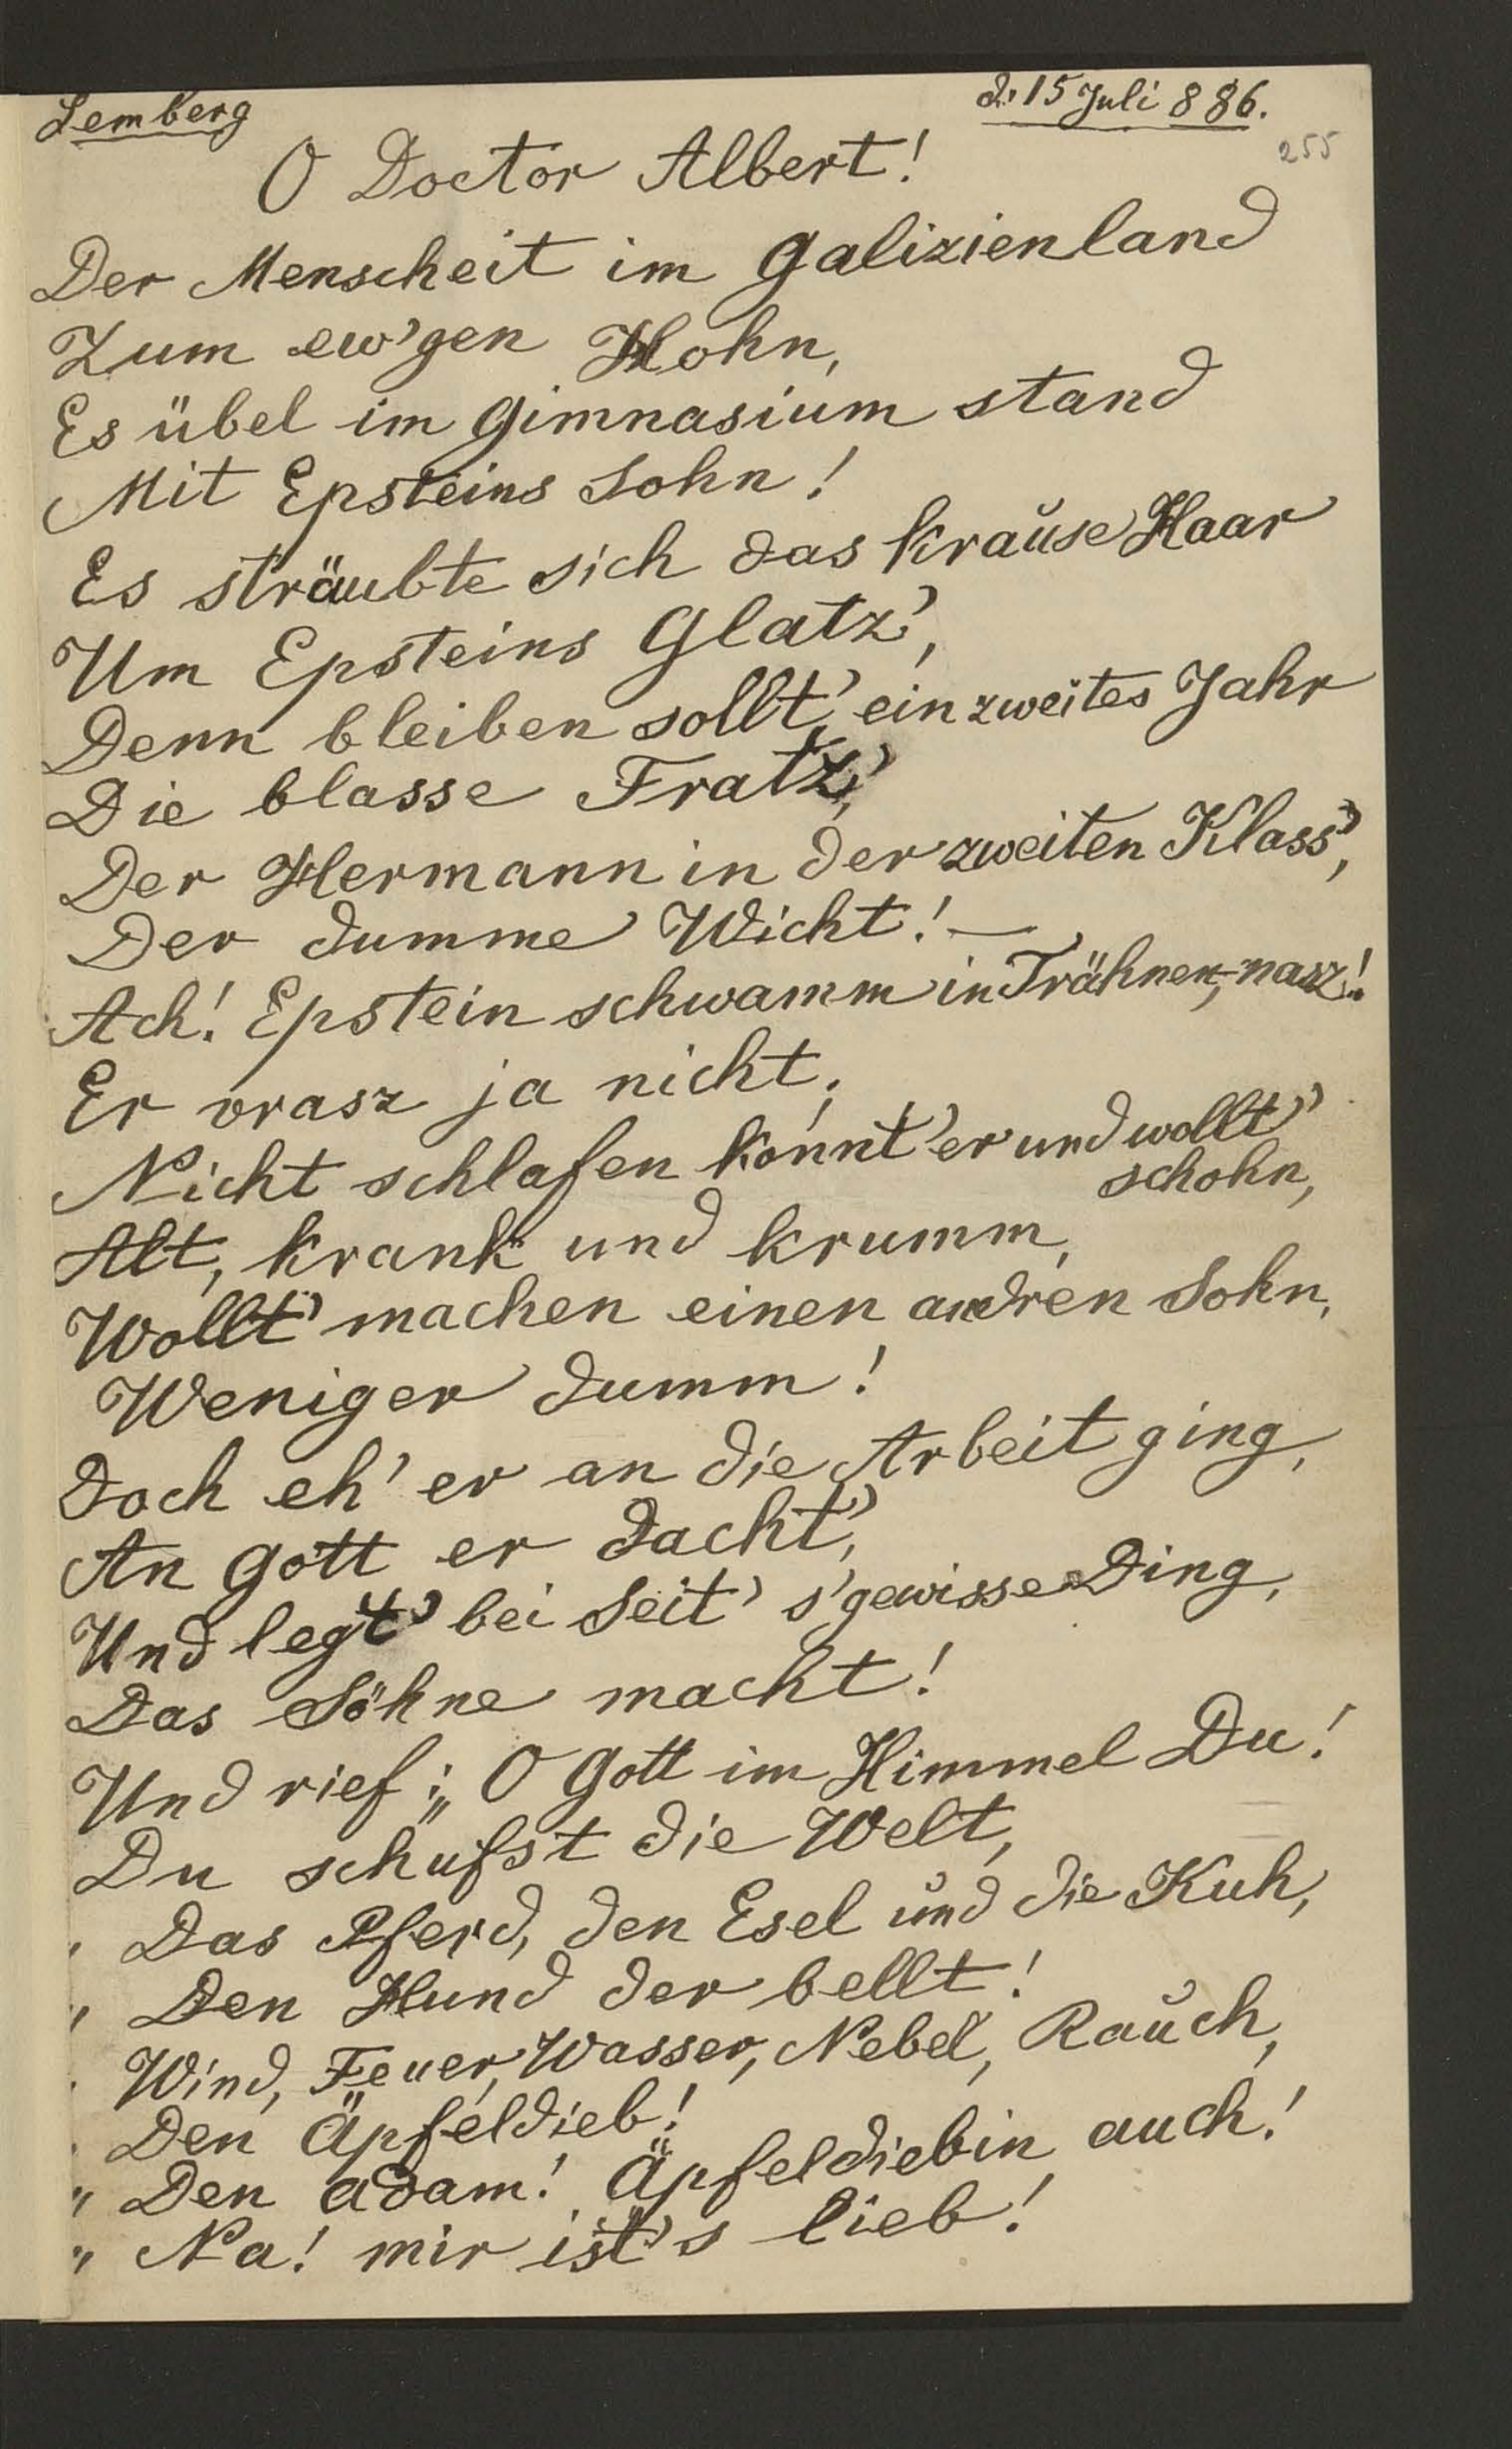 Lemberg
d. 15 Juli 886.
255
O Doctor Albert!
Der Menscheit im Galizienland
Zum ew'gen Hohn,
Es übel im Gimnasium stand
Mit Epsteins Sohn!
Es sträubte sich das krause Haar
Um Epsteins Glatz',
Denn bleiben sollt' ein zweites Jahr
Die blasse Fratz',
Der Hermann in der zweiten Klass',
Der dumme Wicht! —
Ach! Epstein schwamm in Trähnen, nasz!
Er vrasz ja nicht,
Nicht schlafen konnt' er und wollt'
schohn,
Alt, krank und krumm,
Wollt' machen einen andren Sohn,
Weniger dumm!
Doch eh' er an die Arbeit ging,
An Gott er dacht',
Und legt' bei Seit' s'gewisse Ding,
Das Söhne macht!
Und rief: „O Gott im Himmel Du!
Du schufst die Welt,
" Das Pferd, den Esel und die Kuh,
" Den Hund der bellt!
" Wind, Feuer, Wasser, Nebel, Rauch,
" Den Äpfeldieb!
" Den Adam! Äpfeldiebin auch!
" Na! mir ist's lieb!